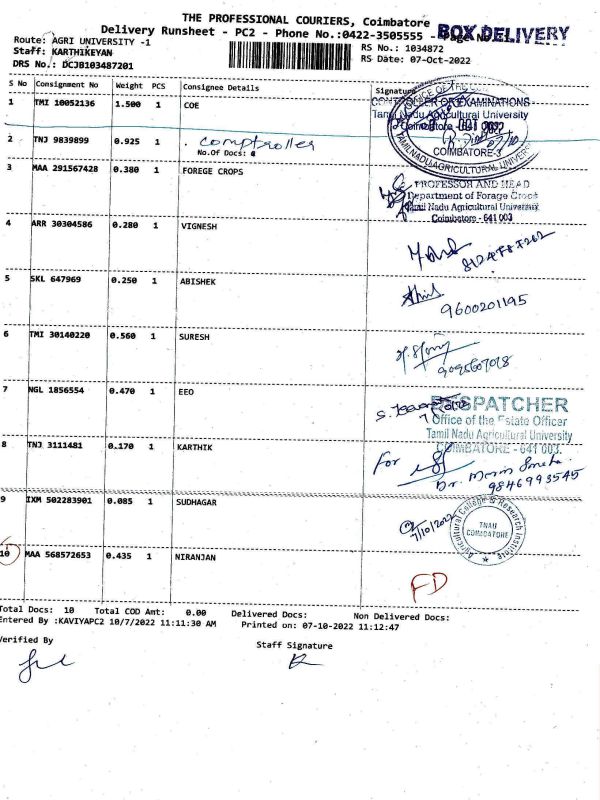 THE PROFESSIONAL COURIERS, Coimbatore
Delivery Runsheet - PC2 - Phone No.:0422-3505555 - Page No.:1
BOX DELIVERY
Route: AGRI UNIVERSITY -1
RS No.: 1034872
Staff: KARTHIKEYAN
RS Date: 07-Oct-2022
DRS No.: DCJB103487201
S No Consignment No Weight PCS Consignee Details Signature
1 TMI 10052136 1.500 1 COE
CONTROLLER OF EXAMINATIONS
Tamil Nadu Agricultural University
Coimbatore - 641 003
COIMBATORE-3
TAMILNADU AGRICULTURAL UNIVERSITY
2 TNJ 9839899 0.925 1 . comptroller
No.Of Docs:
3 MAA 291567428 0.380 1 FOREGE CROPS
PROFESSOR AND HEAD
Department of Forage Crops
Tamil Nadu Agricultural University
Coimbatore - 641 003
4 ARR 30304586 0.280 1 VIGNESH
5 SKL 647969 0.250 1 ABISHEK
9600201195
6 TMI 30140220 0.560 1 SURESH
7 NGL 1856554 0.470 1 EEO
DESPATCHER
Office of the Estate Officer
Tamil Nadu Agricultural University
COIMBATORE - 641 003.
8 TNJ 3111481 0.170 1 KARTHIK
For
9846993545
9 IXM 502283901 0.085 1 SUDHAGAR
7/10/2022
Agricultural College & Research Institute
TNAU
COIMBATORE
10 MAA 568572653 0.435 1 NIRANJAN
FD
Total Docs: 10 Total COD Amt: 0.00 Delivered Docs: Non Delivered Docs:
Entered By :KAVIYAPC2 10/7/2022 11:11:30 AM Printed on: 07-10-2022 11:12:47
Verified By
Staff Signature